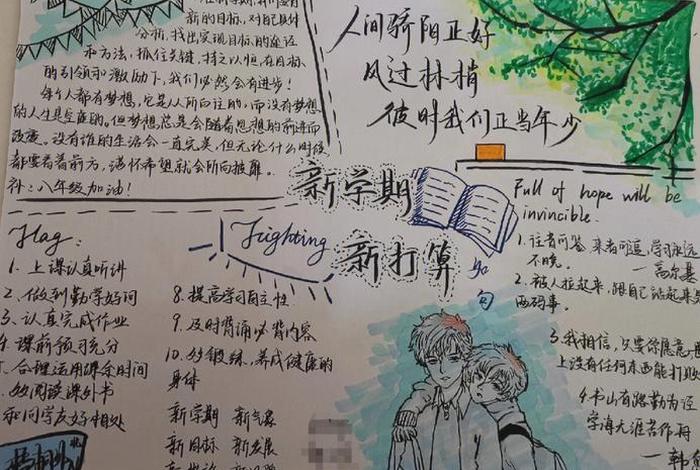 新的目标，对自己具体
分析，找出实现目标的途径
和方法，抓住关键，持之以恒，在目标
的引领和激励下，我们必然会有进步！
每个人都有梦想，它是人所向往的，而没有梦想
的人生是空虚的。但梦想总是会随着思想的前进而
改变。没有谁的生活会一直完美，但无论什么时候
都要看着前方，满怀希望就会所向披靡。
补：八年级加油！
人间骄阳正好
风过林梢
彼时我们正当年少
新学期
Fighting
新打算
Flag：
1. 上课认真听讲
2. 做到勤学好问
3. 认真完成作业
4. 课前预习充分
合理运用课余时间
多阅读课外书
和同学友好相处
8. 提高学习自主性
9. 及时背诵必背内容
10. 多锻炼，养成健康的
身体
新学期 新气象
新目标 新发展
Full of hope will be
invincible.
1. 往者可鉴，来者可追，学习永远
不晚。
— 高尔基
2. 被人拉起来，跟自己站起来是
两码事。
3. 我相信，只要你愿意
上没有任何东西能打败
4. 书山有路勤为径
学海无涯苦作舟
句